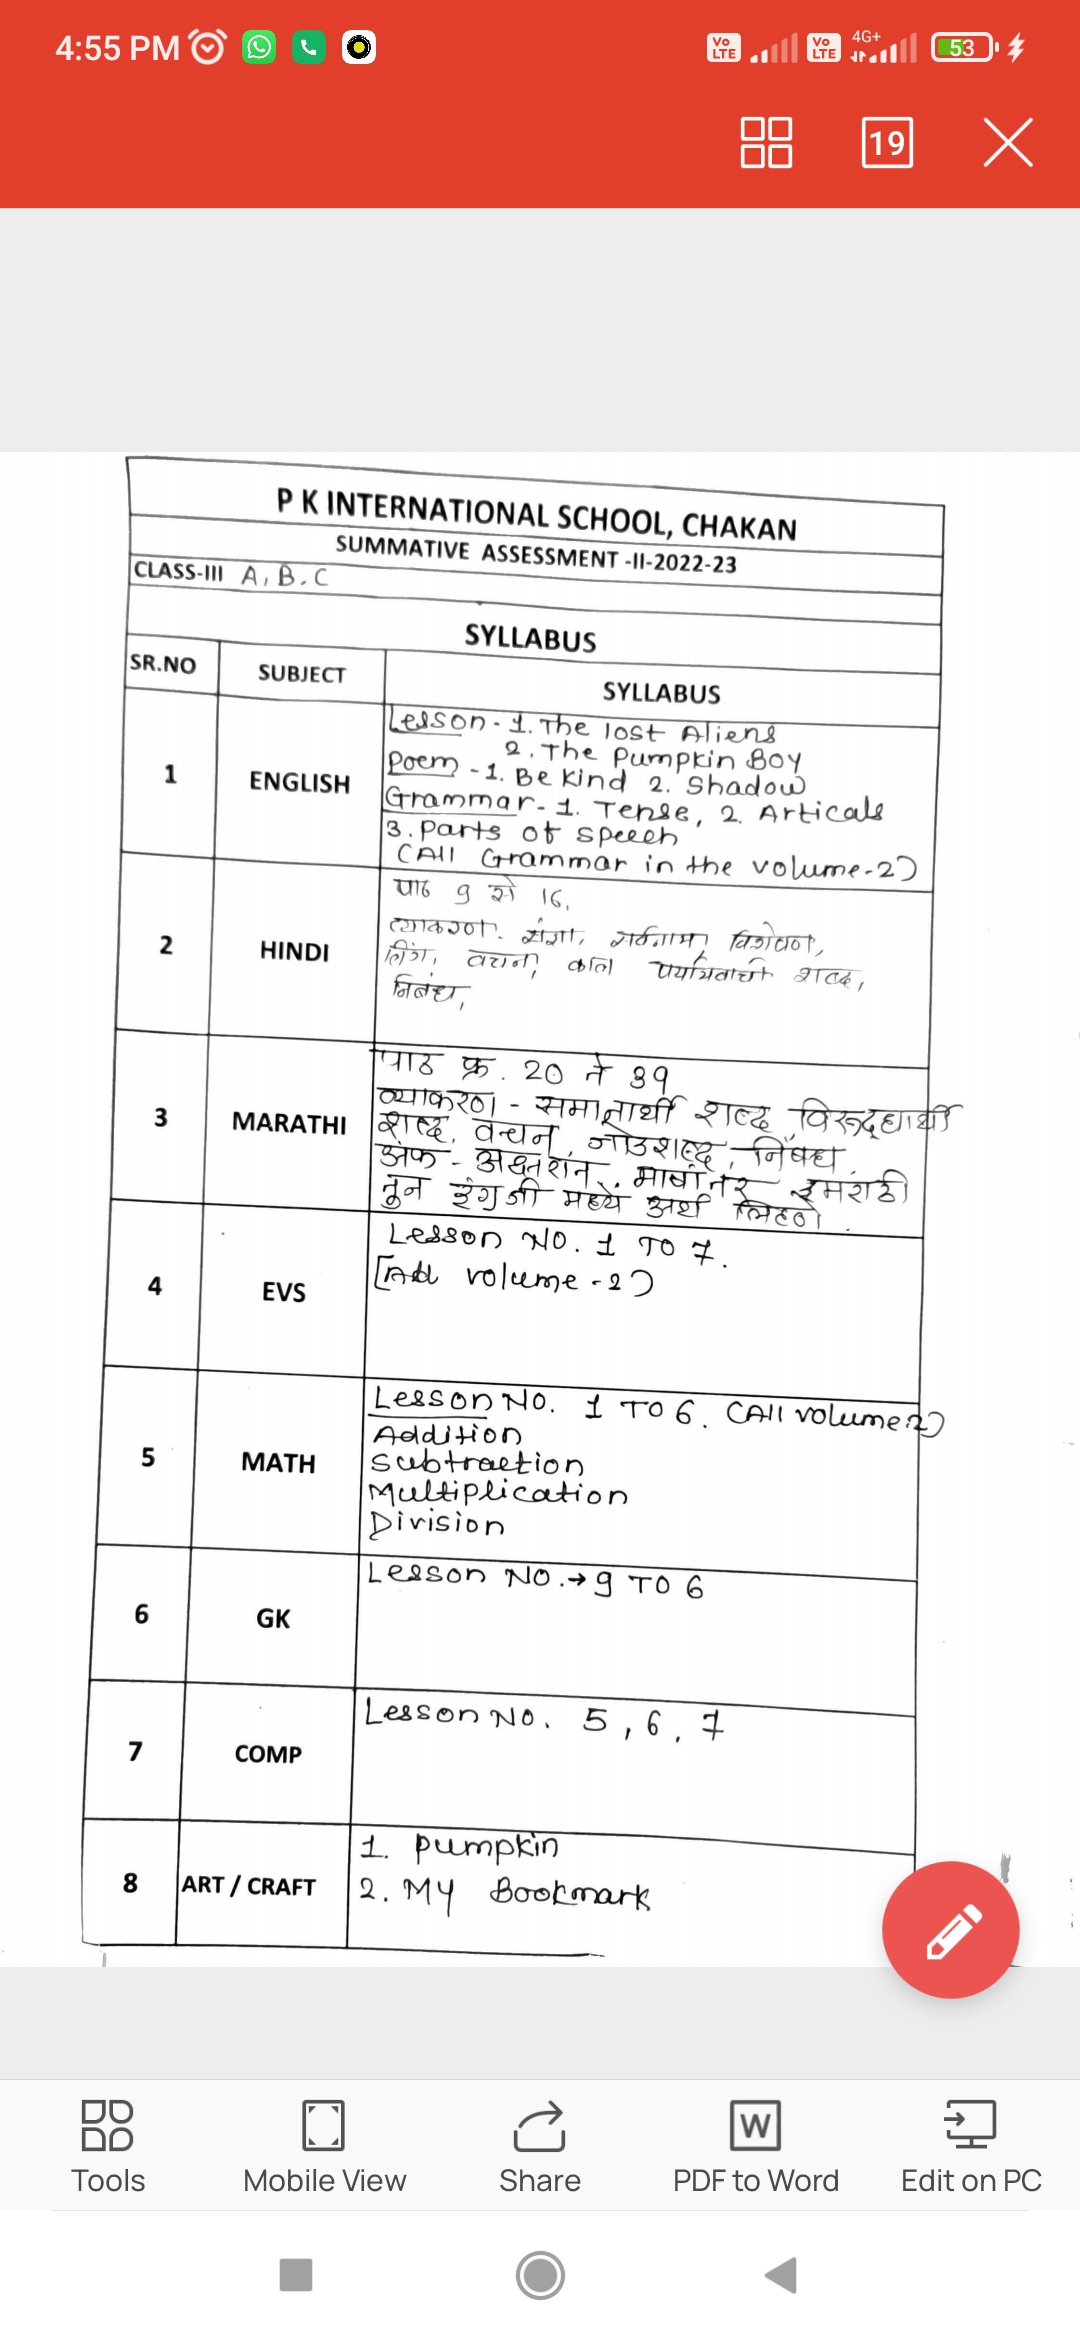 4:55 PM
Vo LTE Vo LTE 4G+ 53
19
P K INTERNATIONAL SCHOOL, CHAKAN
SUMMATIVE ASSESSMENT -II-2022-23
CLASS-III A, B. C
SYLLABUS
SR.NO SUBJECT SYLLABUS
1 ENGLISH
Lesson - 1. The lost Aliens
2. The Pumpkin Boy
Poem - 1. Be Kind 2. Shadow
Grammar - 1. Tense, 2. Articals
3. Parts of speech
(All Grammar in the volume-2)
2 HINDI
पाठ 9 से 16.
व्याकरण. संज्ञा, सर्वनाम, विशेषण,
लिंग, वचन, काल पर्यायवाची शब्द,
निबंध,
3 MARATHI
पाठ क्र. 20 ते 39
व्याकरण - समानार्थी शब्द, विरूद्धार्थी
शब्द, वचन, जोडशब्द, निबंध
अंक - अक्षरात,
इंग्रजी मध्ये अर्थ लिहणे.
4 EVS
Lesson NO. 1 TO 7.
[All volume - 2)
5 MATH
Lesson NO. 1 TO 6. (All volume 2)
Addition
Subtraction
Multiplication
Division
6 GK
Lesson NO.→ 9 TO 6
7 COMP
Lesson NO. 5, 6, 7
8 ART / CRAFT
1. Pumpkin
2. MY Bookmark
Tools Mobile View Share W PDF to Word Edit on PC